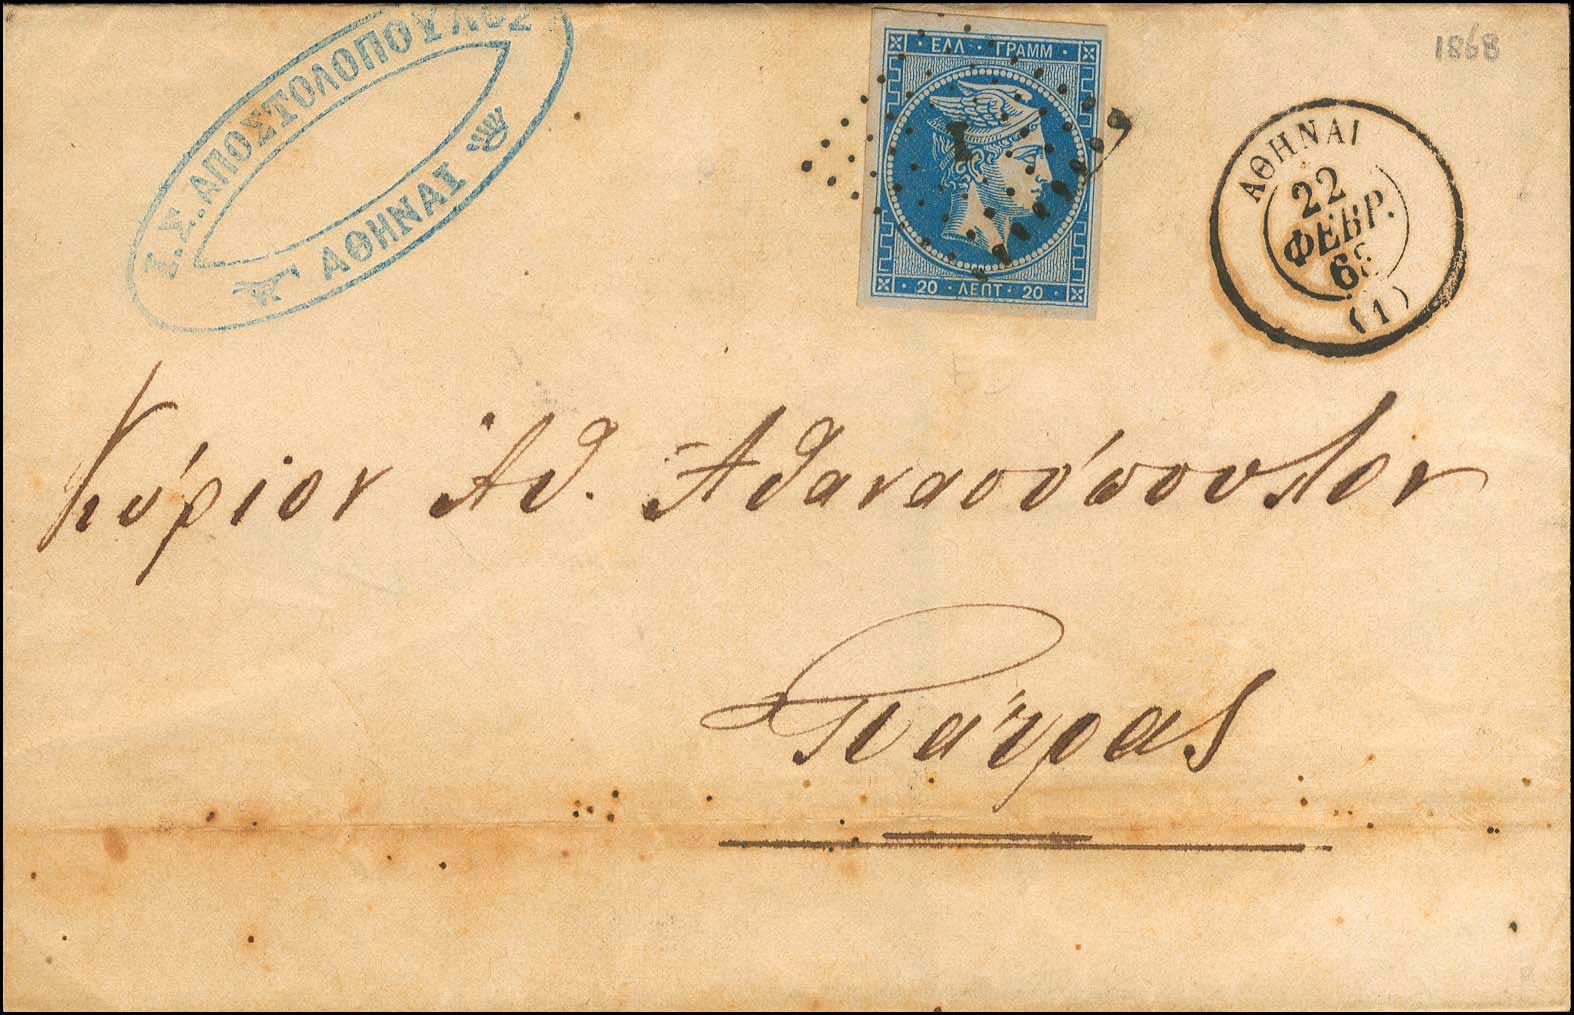 Σ. ΑΠΟΣΤΟΛΟΠΟΥΛΟΣ
ΑΘΗΝΑΙ
ΕΛΛ · ΓΡΑΜΜ
1
20 · ΛΕΠΤ · 20
1868
ΑΘΗΝΑΙ
22
ΦΕΒΡ.
68
(1)
Κύριον Αθ. Αθανασόπουλον
Πάτρας